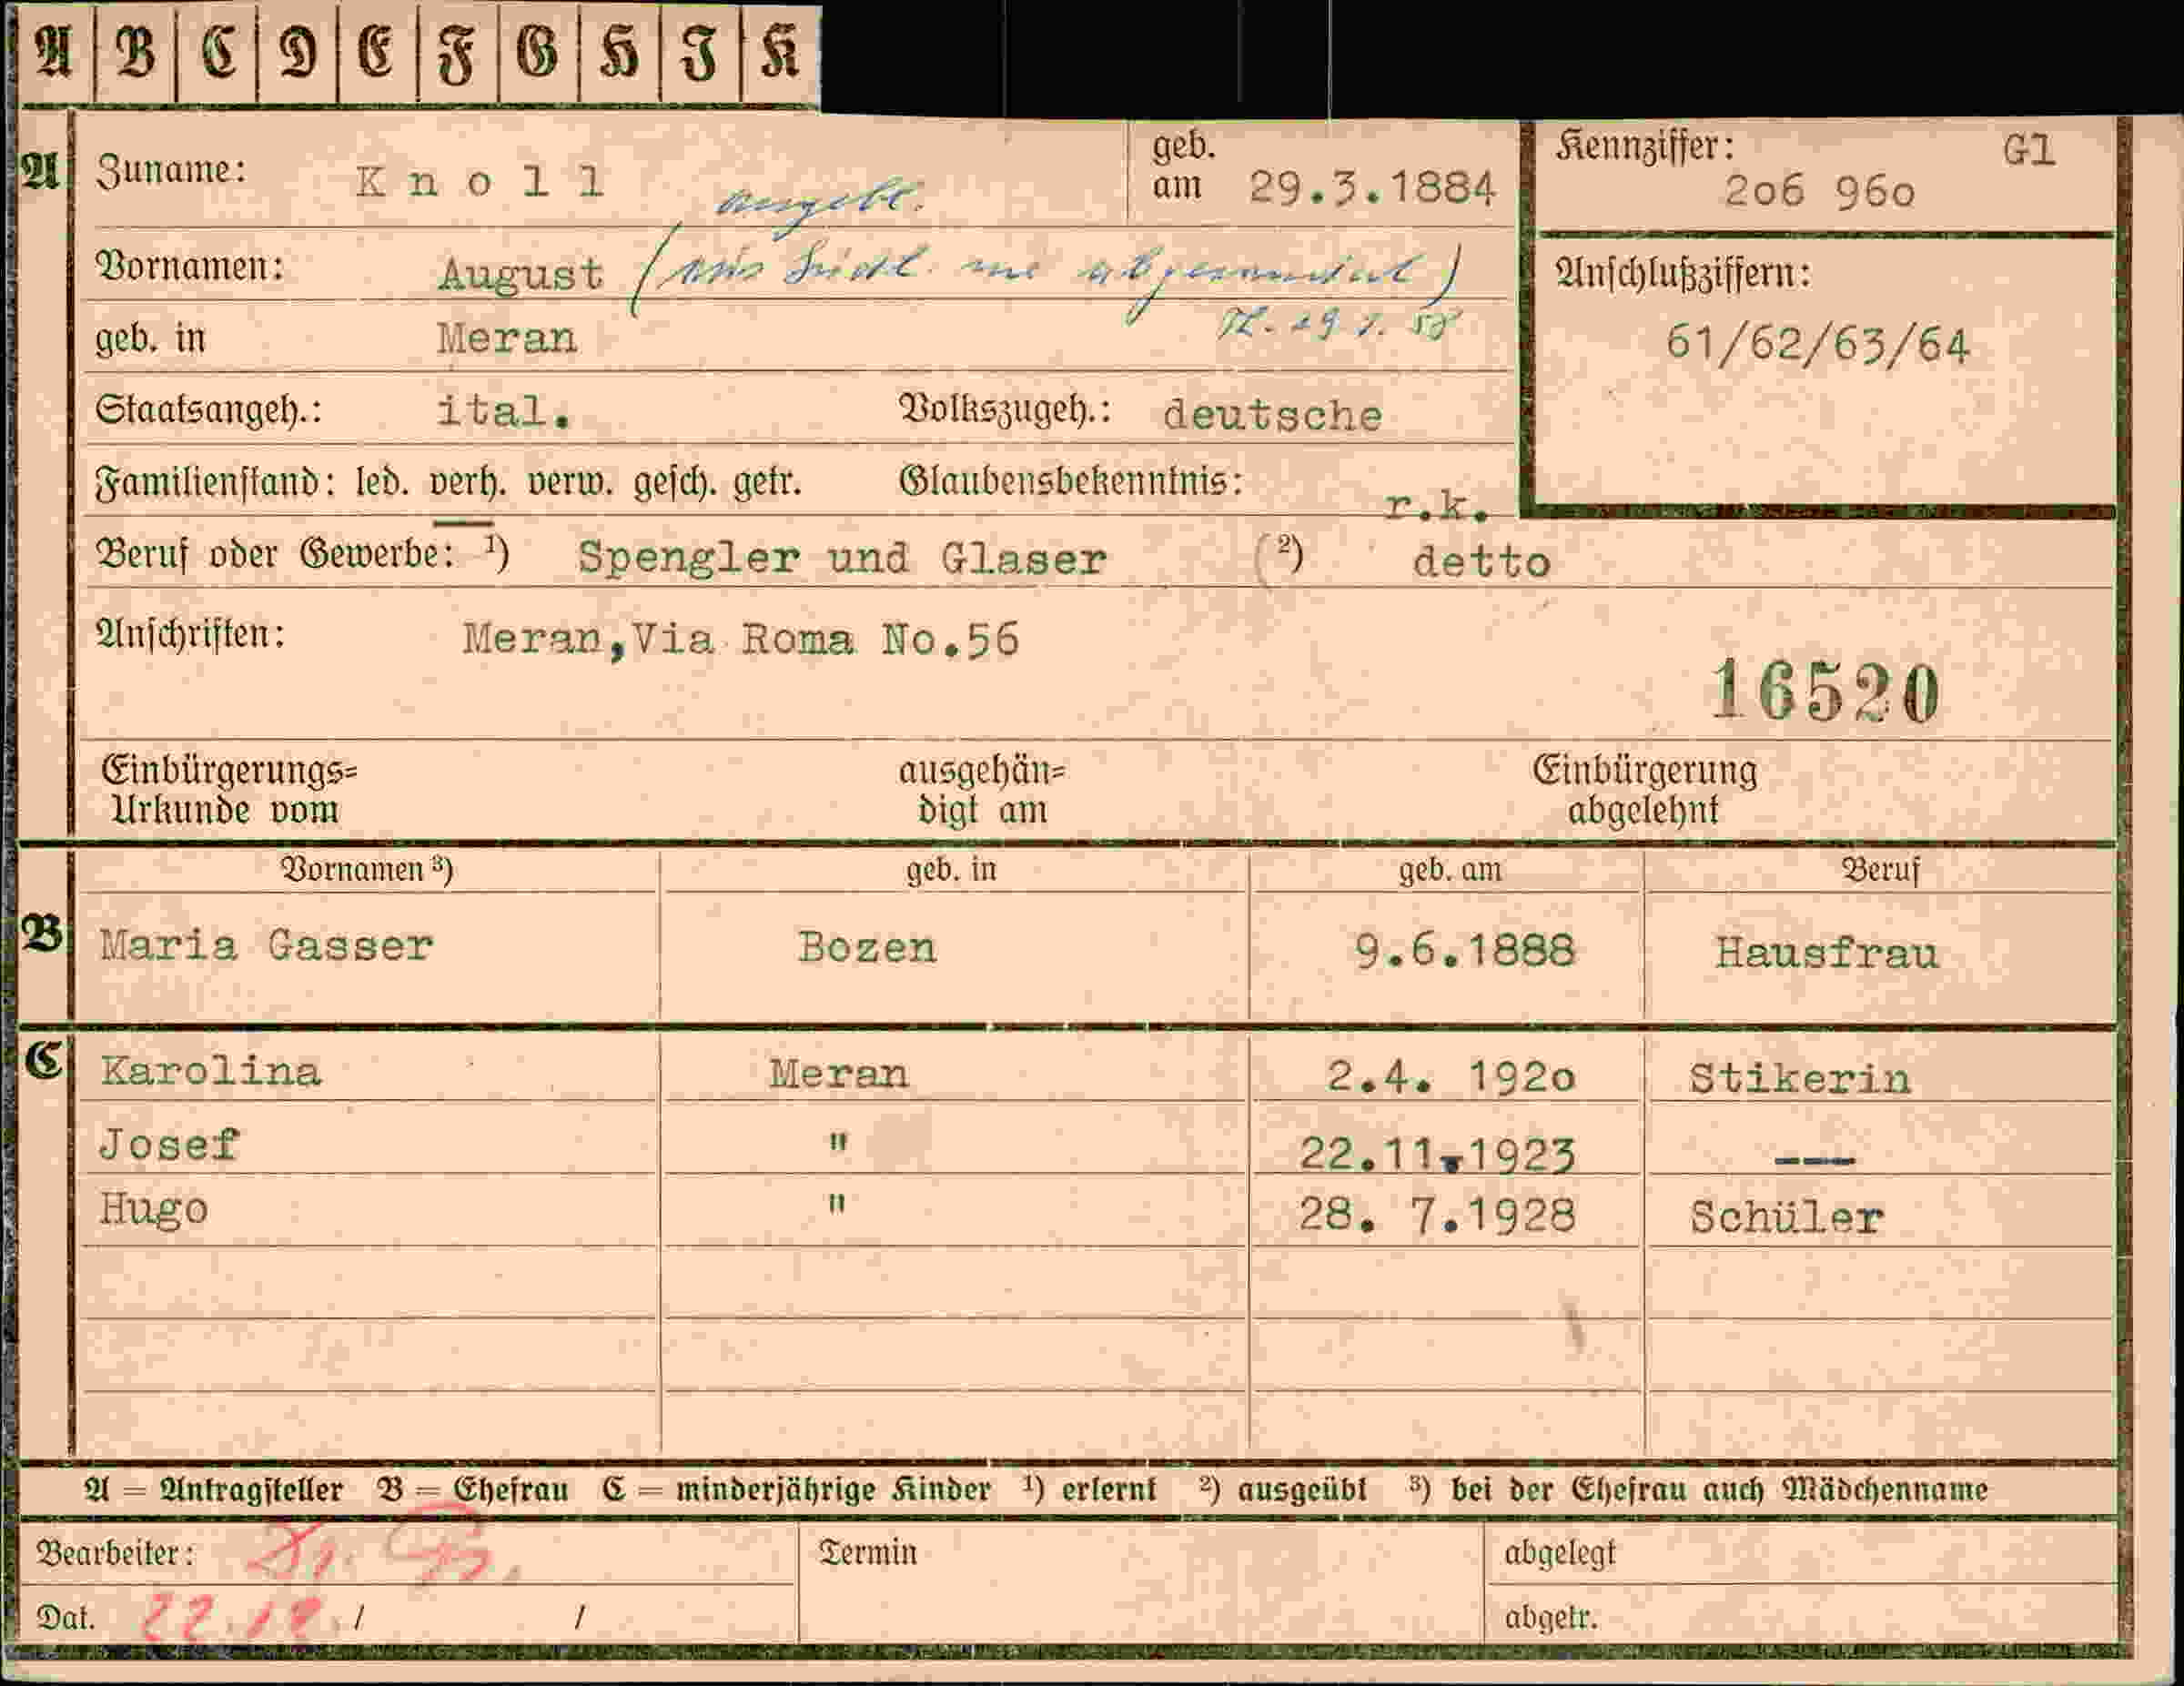 A B C D E F G H I K
A Zuname: Knoll geb. am 29.3.1884 Kennziffer: 2o6 96o Gl
angebl.
Vornamen: August ( nie abgewandert) Anschlußziffern:
geb. in Meran 61/62/63/64
Staatsangeh.: ital. Volkszugeh.: deutsche
Familienstand: led. verh. verw. gesch. getr. Glaubensbekenntnis: r.k.
Beruf oder Gewerbe: ¹) Spengler und Glaser ²) detto
Anschriften: Meran,Via Roma No.56
16520
Einbürgerungs= ausgehän= Einbürgerung
Urkunde vom digt am abgelehnt
Vornamen ³) geb. in geb. am Beruf
B Maria Gasser Bozen 9.6.1888 Hausfrau
C Karolina Meran 2.4. 192o Stikerin
Josef " 22.11.1923 ---
Hugo " 28. 7.1928 Schüler
A = Antragsteller B = Ehefrau C = minderjährige Kinder ¹) erlernt ²) ausgeübt ³) bei der Ehefrau auch Mädchenname
Bearbeiter: Termin abgelegt
Dat. 22.12. / / abgetr.